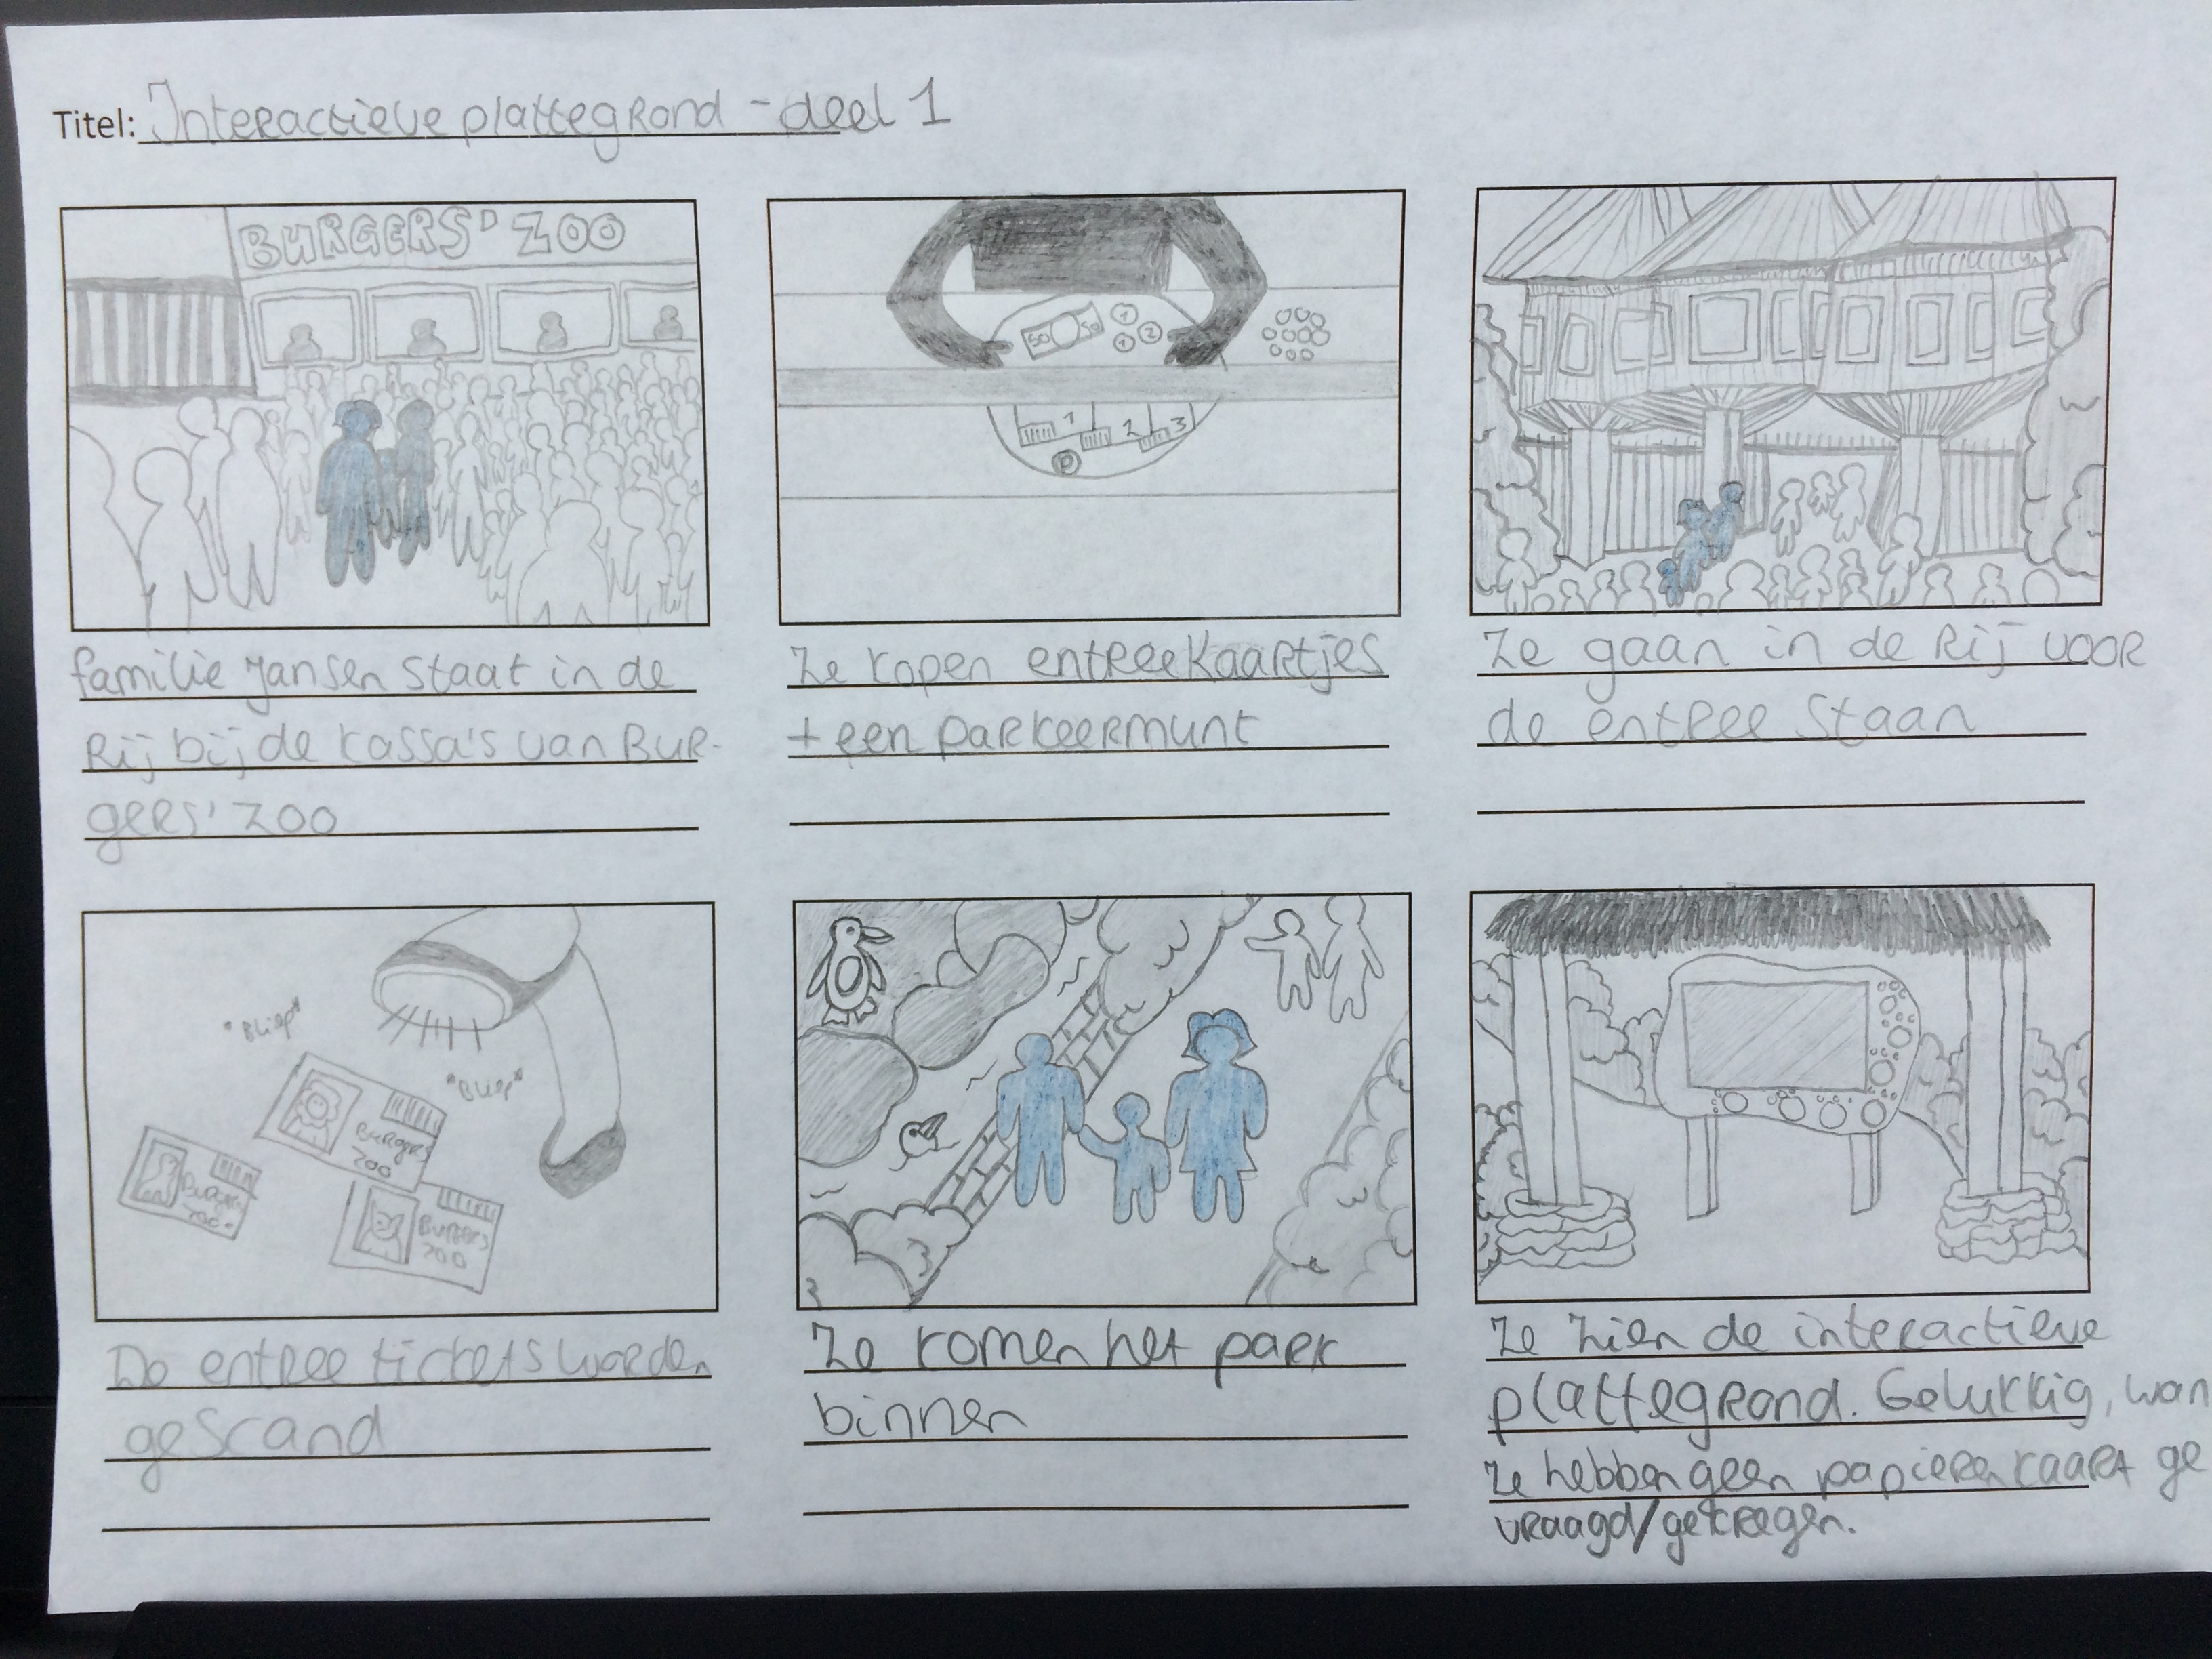 Titel: Interactieve plattegrond - deel 1
BURGERS' ZOO
familie Jansen staat in de
Rij bij de kassa's van Bur-
gers' Zoo
50 50 1 2 1
1 2 3
P
Ze kopen entreekaartjes
+ een parkeermunt
Ze gaan in de Rij voor
de entree staan
"Bliep"
"Bliep"
Burgers
Zoo
Burgers
Zoo
Burgers
Zoo
De entree tickets worden
gescand
Ze komen het park
binnen
Ze zien de interactieve
plattegrond. Gelukkig, wan
ze hebben geen papieren kaart ge
vraagd/gekregen.